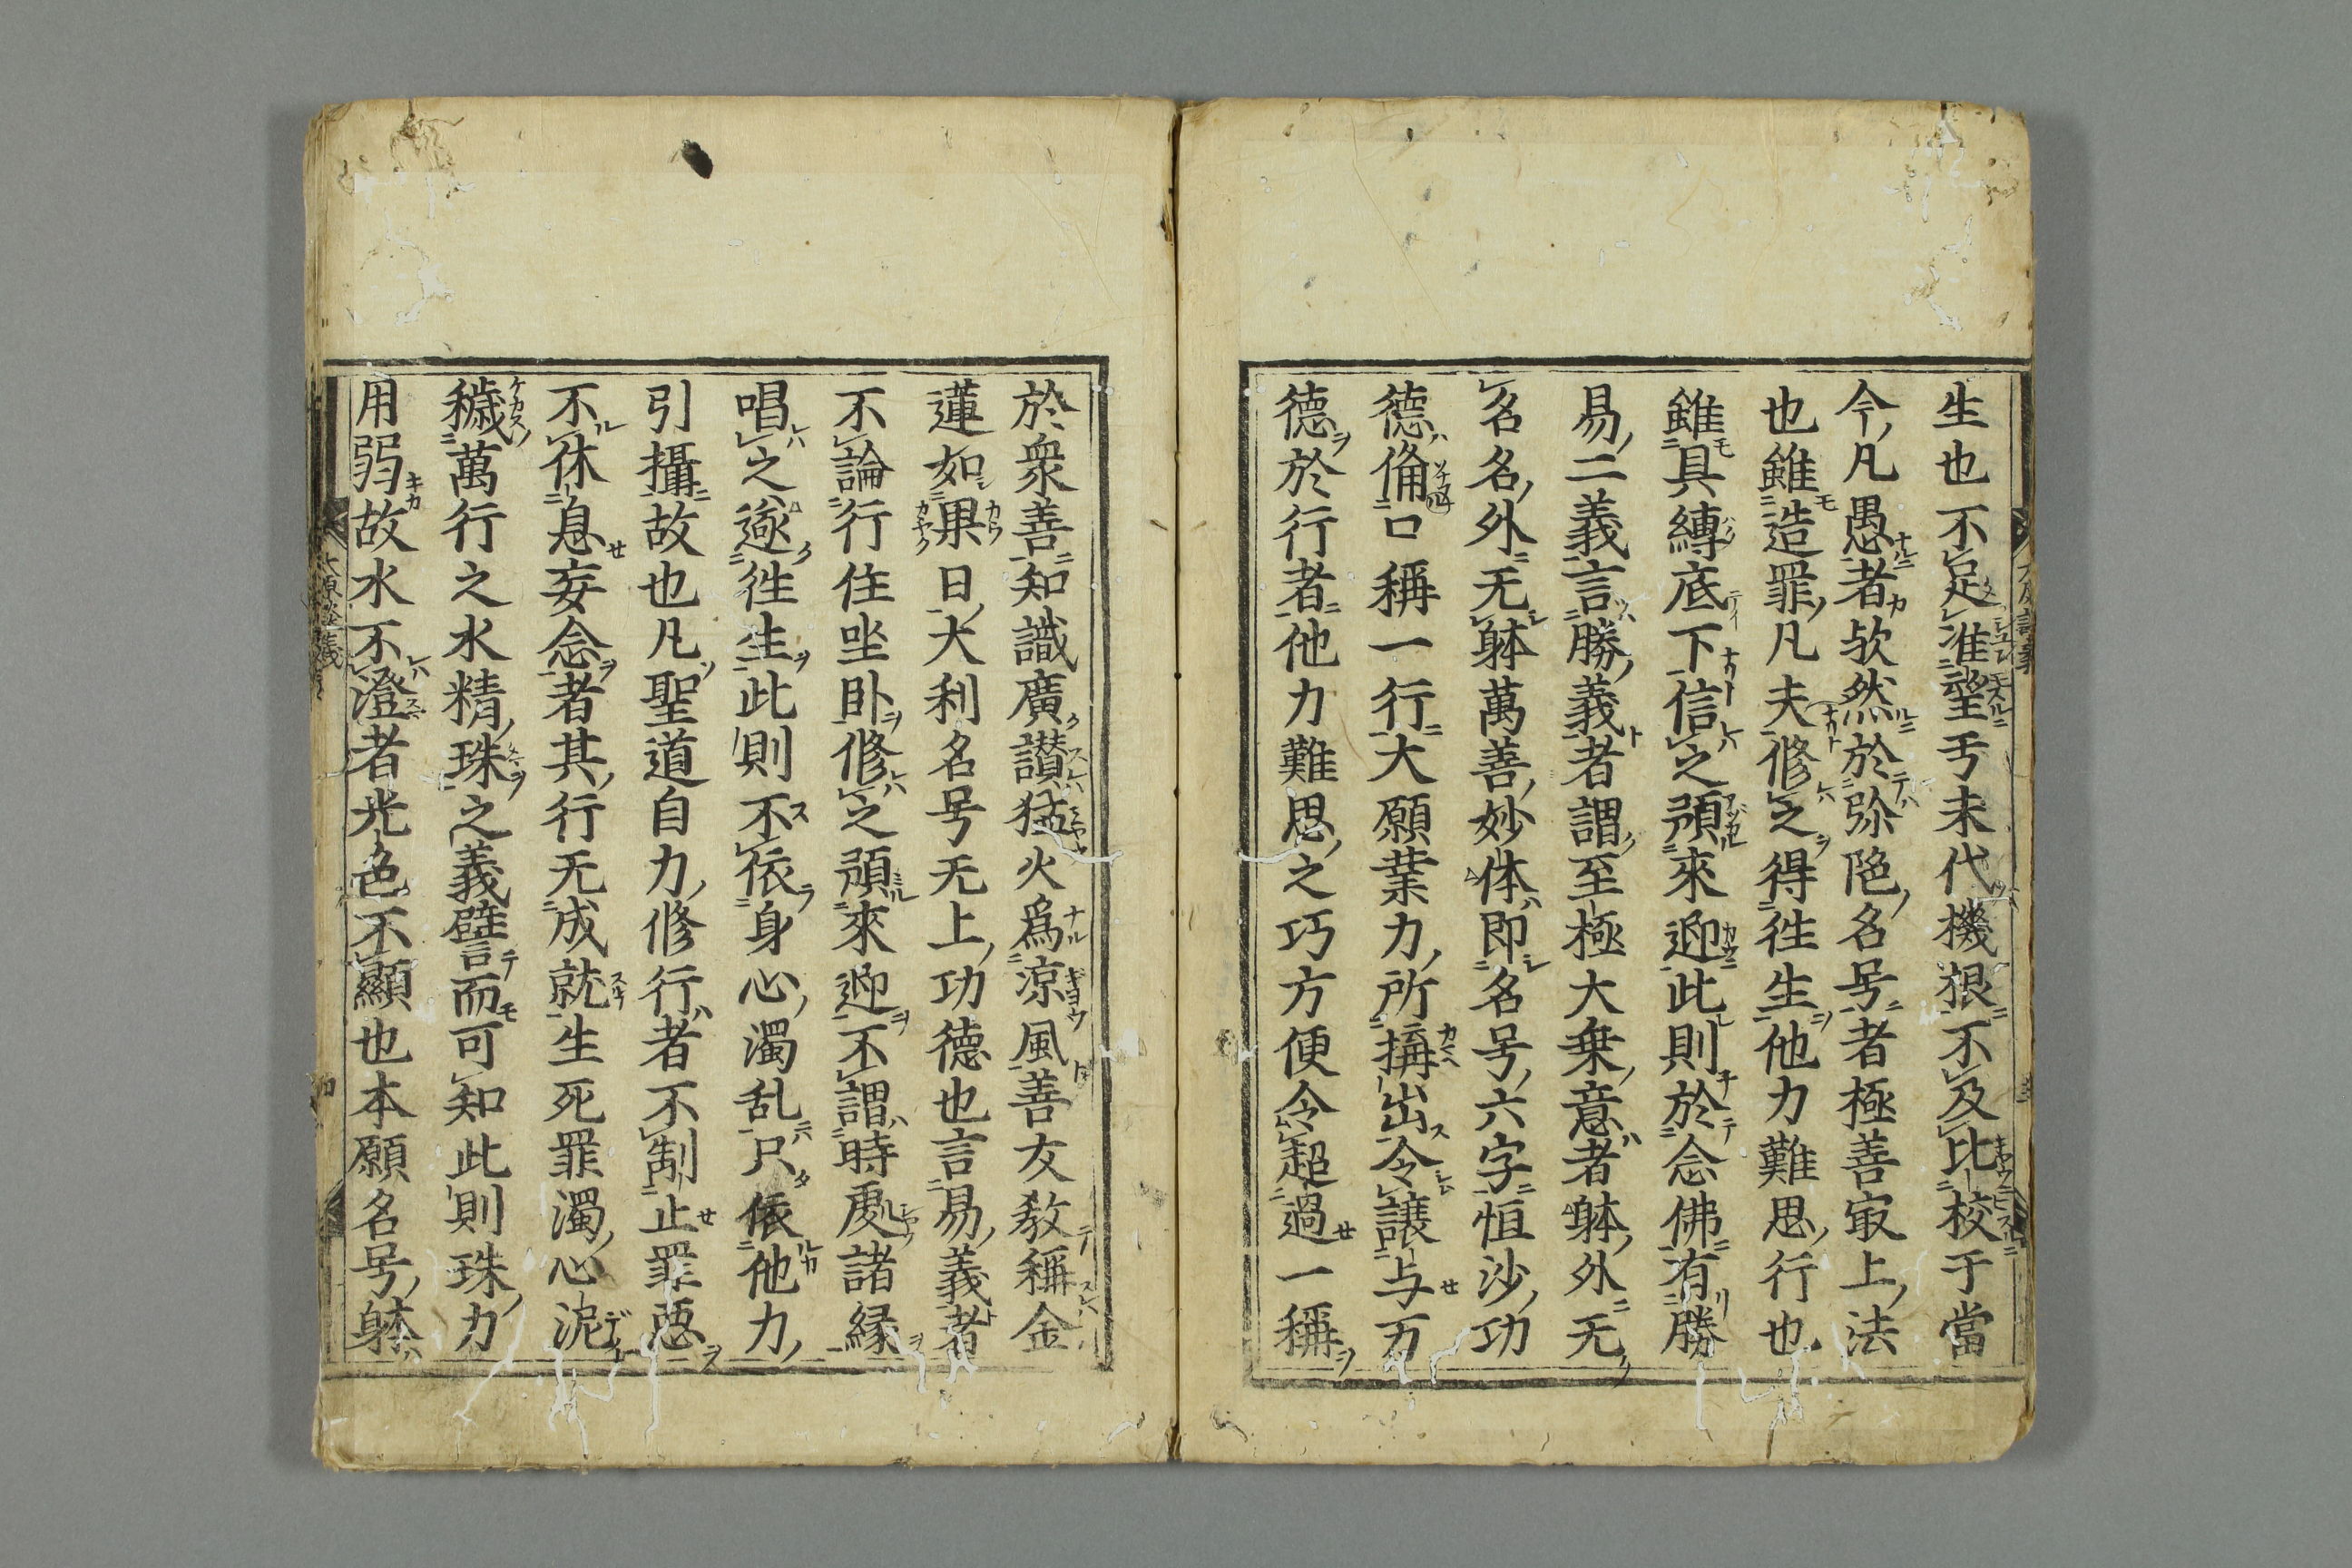 生也不足准望于末代機根不及比校于當
今凡愚者欤然於弥陁名号者極善㝡上法
也雖造罪凡夫修之得徃生他力難思行也
雖具縛底下信之預來迎此則於念佛有勝
易二義言勝義者謂至極大乗意者躰外无
名名外无躰萬善妙体即名号六字恒沙功
德備口稱一行大願業力所搆出令譲与万
德於行者他力難思之巧方便令超過一稱
於衆善知識廣讃猛火爲凉風善友教稱金
蓮如果日大利名号无上功德也言易義者
不論行住坐卧修之預來迎不謂時處諸縁
唱之遂徃生此則不依身心濁乱只依他力
引攝故也凡聖道自力修行者不制止罪惡
不休息妄念者其行无成就生死罪濁心泥
穢萬行之水精珠之義譬而可知此則珠力
用弱故水不澄者光色不顯也本願名号躰